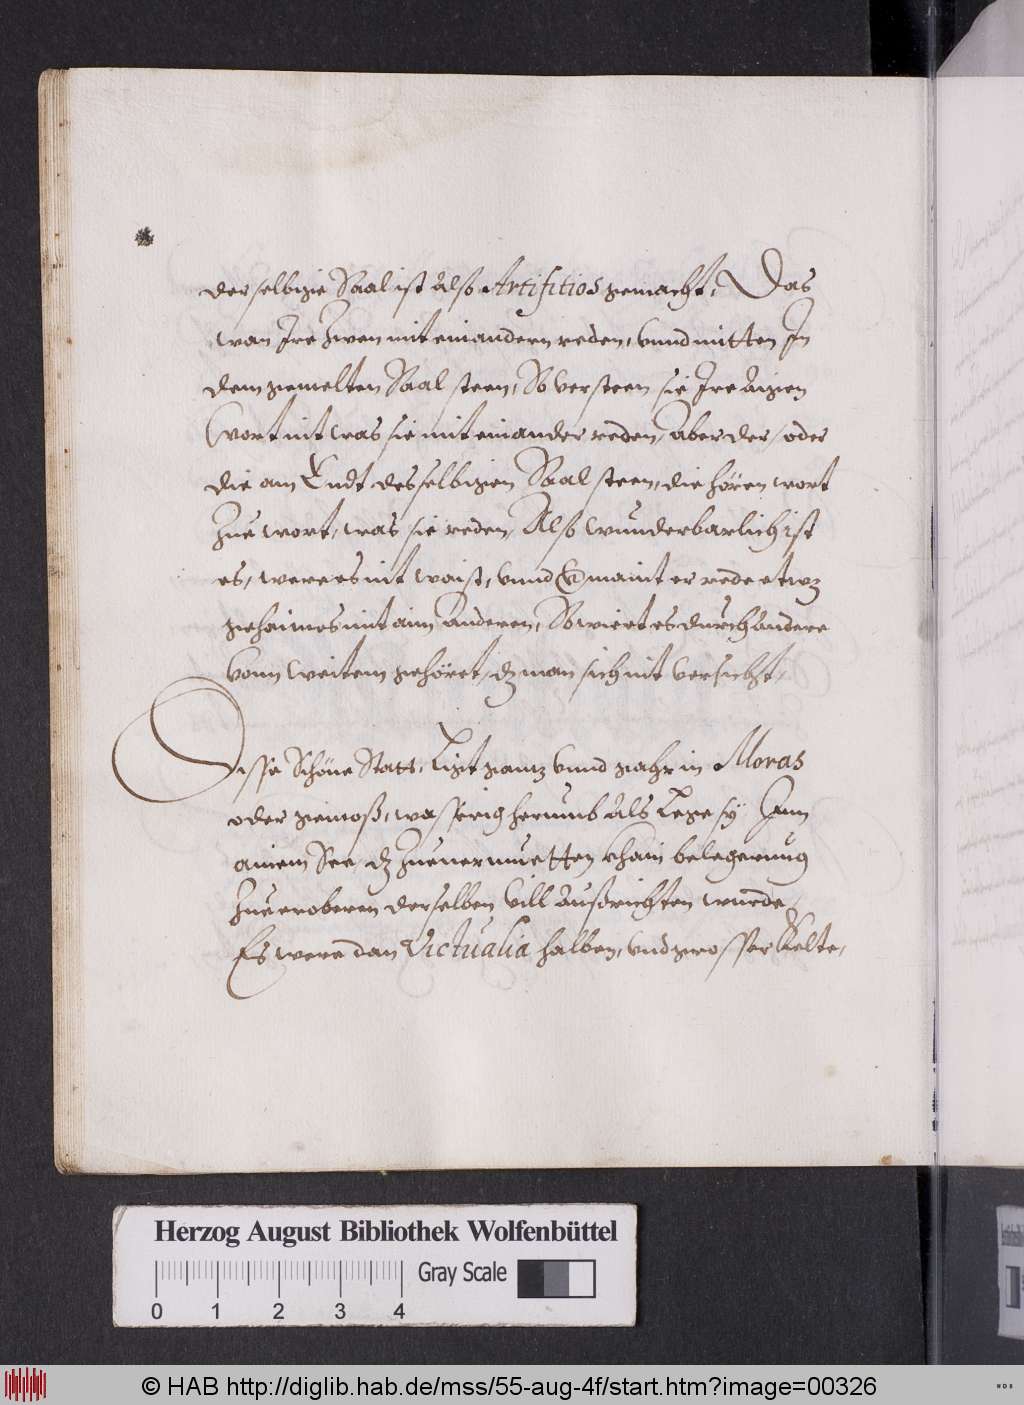 derselbige Saal ist Also Artifitios gemacht, Das
wan Ire Zwen mit einandern reden, vnnd mitten In
dem gemelten Saal steen, So versteen sie Ire aigen
Wort nit was sie mit einander reden, Aber der, oder
die am Endt desselbigen Saal steen, die hören wort
Zue wort, was sie reden, Also wunderbarlich ist
es, were es nit waist, vnnd maint er rede etwz
gehaimes mit aim Anderen, So wirt es durch Andere
vonn weitem gehöret, dz man sich nit versicht,
Disse Schöne Statt, Ligt ganz vnnd gahr in Moras
oder gemoß, wasserig herumb Als Lege sy Inn
ainem See, dz Zueuermuetten khain belegerung
Zue eroberen derselben Vill Außrichten wurde,
Es were dan Victualia halben, vnd grosser Kelte,
Herzog August Bibliothek Wolfenbüttel
Gray Scale
0 1 2 3 4
© HAB http://diglib.hab.de/mss/55-aug-4f/start.htm?image=00326